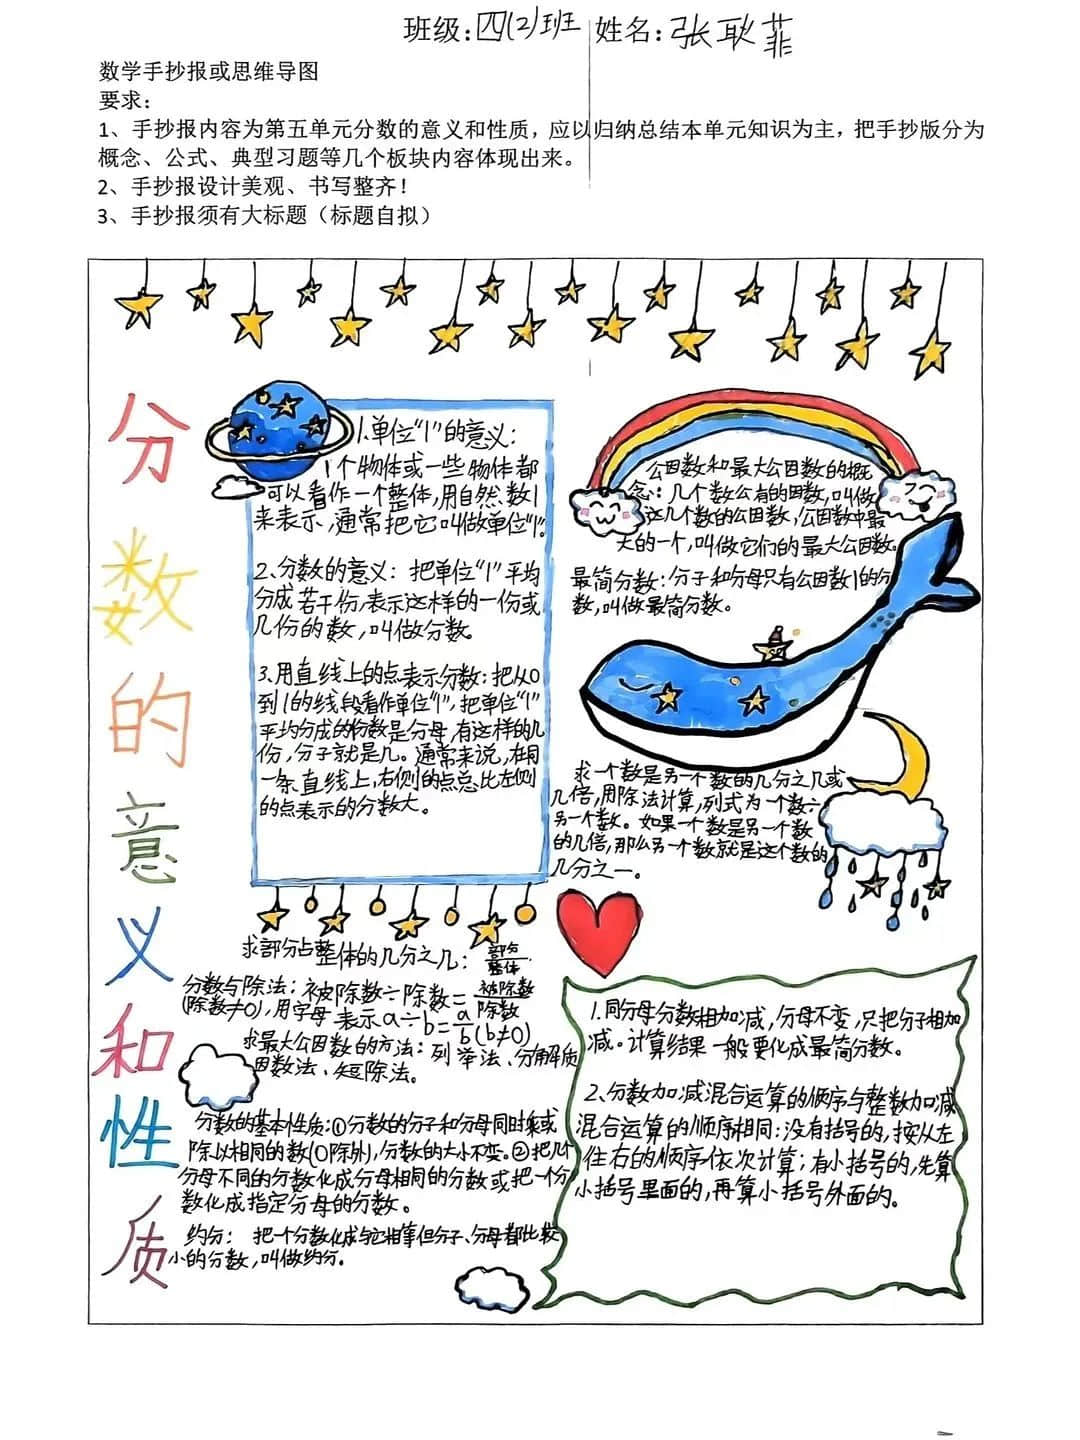 班级:四(2)班 姓名:张耿菲
数学手抄报或思维导图
要求:
1、手抄报内容为第五单元分数的意义和性质，应以归纳总结本单元知识为主，把手抄版分为
概念、公式、典型习题等几个板块内容体现出来。
2、手抄报设计美观、书写整齐！
3、手抄报须有大标题（标题自拟）
分数的意义和性质
1.单位“1”的意义:
1个物体或一些物体都
可以看作一个整体,用自然数1
来表示,通常把它叫做单位“1”.
2、分数的意义: 把单位“1”平均
分成若干份,表示这样的一份或
几份的数,叫做分数。
3.用直线上的点表示分数:把从0
到1的线段看作单位“1”,把单位“1”
平均分成的份数是分母,有这样的几
份,分子就是几。通常来说,在同
一条直线上,右侧的点总比左侧
的点表示的分数大。
公因数和最大公因数的概
念: 几个数公有的因数,叫做
这几个数的公因数,公因数中最
大的一个,叫做它们的最大公因数。
最简分数:分子和分母只有公因数1的分
数,叫做最简分数。
求一个数是另一个数的几分之几或
几倍,用除法计算,列式为一个数÷
另一个数。如果一个数是另一个数
的几倍,那么另一个数就是这个数的
几分之一.
求部分占整体的几分之几: 部分/整体.
分数与除法: 被除数÷除数=被除数/除数
(除数≠0),用字母表示a÷b=a/b(b≠0)
求最大公因数的方法:列举法、分解质
因数法、短除法。
分数的基本性质:①分数的分子和分母同时乘或
除以相同的数(0除外),分数的大小不变.②把几个
分母不同的分数化成分母相同的分数或把一个分
数化成指定分母的分数。
约分: 把一个分数化成与它相等但分子、分母都比较
小的分数,叫做约分.
1.同分母分数相加减,分母不变,只把分子相加
减。计算结果一般要化成最简分数。
2、分数加减混合运算的顺序与整数加减
混合运算的顺序相同:没有括号的,按从左
往右的顺序依次计算;有小括号的,先算
小括号里面的,再算小括号外面的.